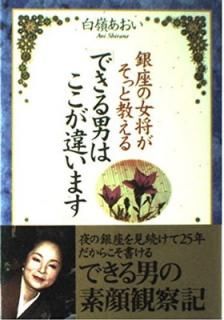 白嶺あおい
Aoi Shirane
銀座の女将が
そっと教える
できる男は
ここが違います
夜の銀座を見続けて25年
だからこそ書ける
できる男の
素顔観察記